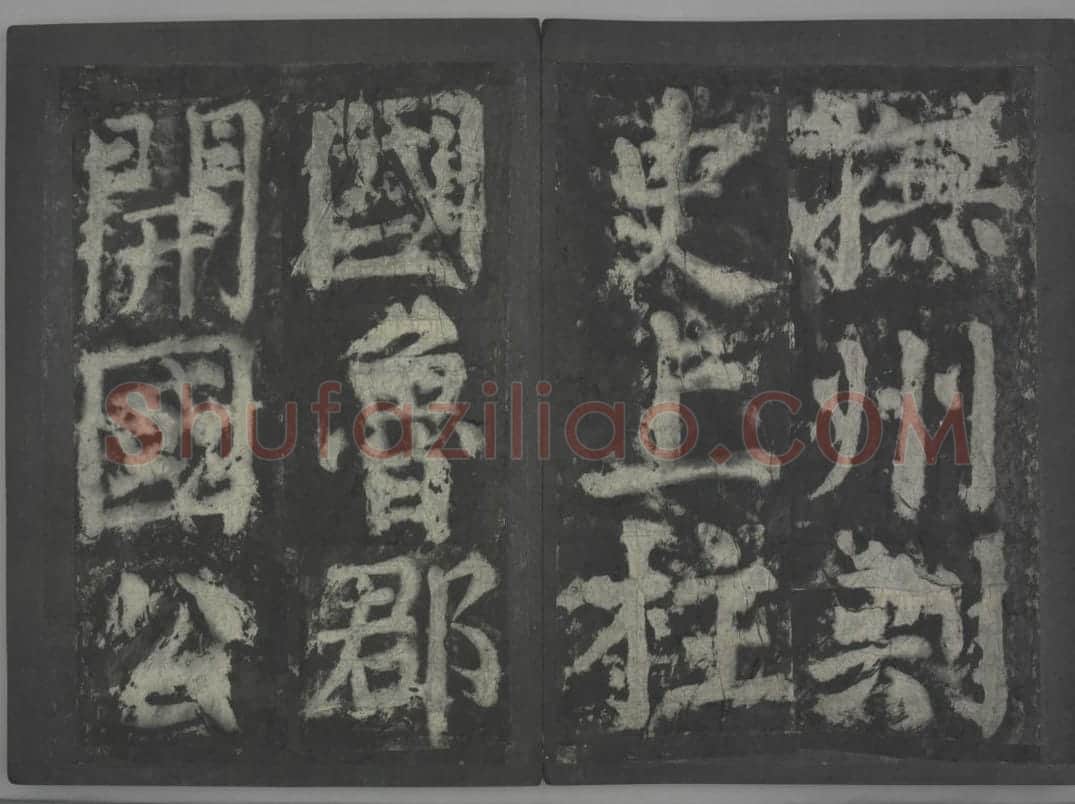 撫州刺
史上柱
國魯郡
開國公
Shufaziliao.COM